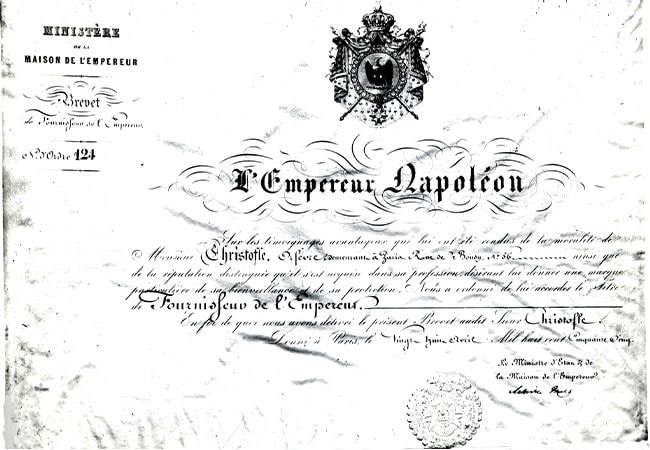 MINISTÈRE
DE LA
MAISON DE L'EMPEREUR
Brevet
de Fournisseur de l'Empereur
N.º d'Ordre 124
L'Empereur Napoléon
Sur les témoignages avantageux qui lui ont été rendus de la moralité de
Monsieur Christofle, Orfèvre, demeurant à Paris, Rue de Bondy, Nº 56, ainsi que
de la réputation distinguée qu'il s'est acquise dans sa profession désirant lui donner une marque
particulière de sa bienveillance et de sa protection, Nous a ordonné de lui accorder le Titre
de Fournisseur de l'Empereur.
En foi de quoi nous avons délivré le présent Brevet audit Sieur Christofle.
Donné à Paris, le Vingt Huit Avril Mil huit cent Cinquante Cinq.
Le Ministre d'Etat & de
la Maison de l'Empereur